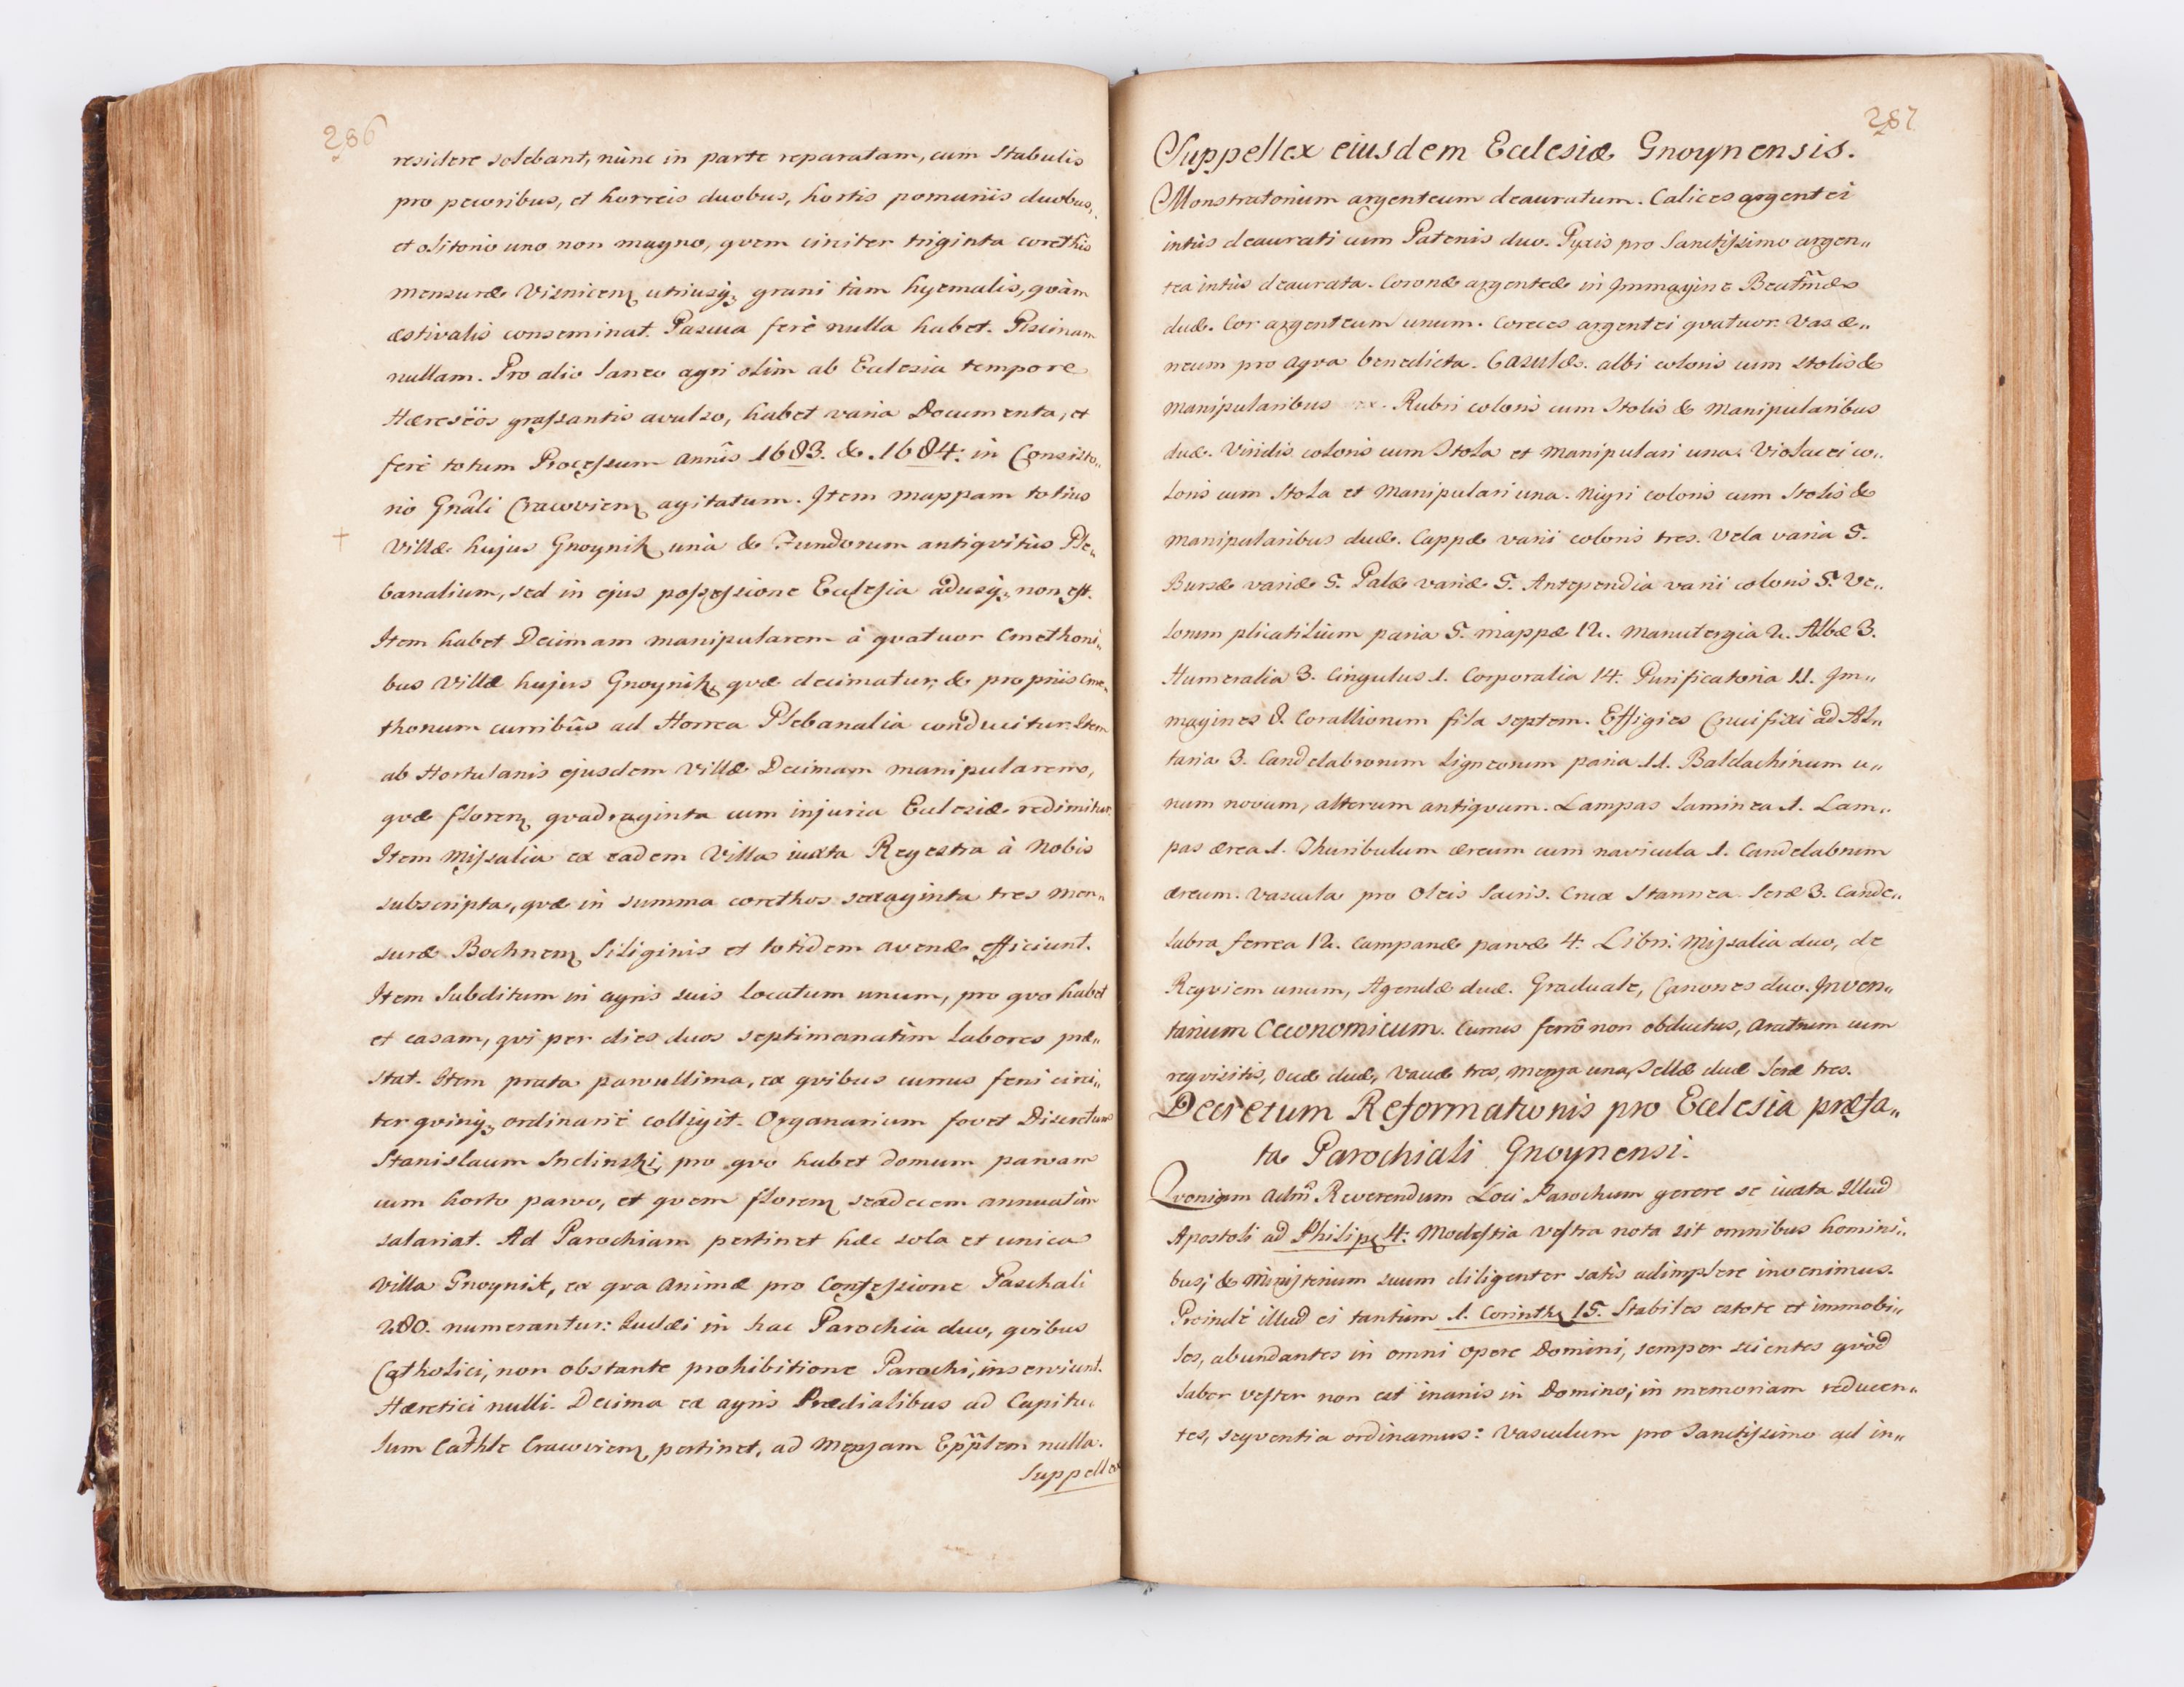 286
residere solebant, nunc in parte reparatam, cum stabulis
pro pecoribus, et horreis duobus, hortis pomariis duobus,
et olitorio uno non magno, qvem circiter triginta corethis
mensuræ Visnicen. utriusq; grani tàm hyemalis, qvàm
æstivalis conseminat. Pascua ferè nulla habet. Piscinam
nullam. Pro alio laneo agri olim ab Ecclesia tempore
Hæreseos grassantis avulso, habet varia Documenta, et
ferè totum Processum annis 1683. & 1684. in Consisto„
rio Gnâli Cracovien. agitatum. Item mappam totius
+ Villæ hujus Gnoynik unà & Fundorum antiqvitùs Ple„
banalium, sed in ejus possessione Ecclesia adusq; non est.
Item habet Decimam manipularem à qvatuor Cmethoni„
bus Villæ hujus Gnoynik, qvæ decimatur, & propriis Cme„
thonum curribûs ad Horrea Plebanalia conducitur. Item
ab Hortulanis ejusdem Villæ Decimam manipularem,
qvæ floren. qvadraginta cum injuria Ecclesiæ redimitur.
Item Missalia ex eadem Villa iuxta Regestra à Nobis
subscripta, qvæ in summa corethos sexaginta tres men„
suræ Bochnen. Siliginis et totidem avenæ efficiunt.
Item Subditum in agris suis locatum unum, pro qvo habet
et casam, qvi per dies duos septimanatim labores præ„
stat. Item prata parvullima, ex qvibus currus feni circi„
ter qvinq; ordinariè colligit. Organarium fovet Discretum
Stanislaum Indinski, pro qvo habet domum parvam
cum horto parvo, et qvem floren. sexdecem annuatim
salariat. Ad Parochiam pertinet hæc sola et unica
villa Gnoynik, ex qva Animæ pro Confessione Paschali
280. numerantur: Iudæi in hac Parochia duo, qvibus
Catholici, non obstante prohibitione Parochi, inserviunt.
Hæretici nulli. Decima ex agris Prædialibus ad Capitu„
lum Cathle Cracovien. pertinet, ad Mensam Epp̃lem nulla.
Suppellex
287
Suppellex eiusdem Ecclesiæ Gnoynensis.
Monstratorium argenteum deauratum. Calices argentei
intùs deaurati cum Patenis duo. Pyxis pro Sanctissimo argen„
tea intùs deaurata. Coronæ argenteæ in Immagine Beatmæ
duæ. Cor argenteum unum. Coreces argentei qvatuor. Vas æ„
neum pro aqva benedicta. Casulæ. albi coloris cum stolis &
manipularibus Rubri coloris cum Stolis & Manipularibus
duæ. Viridis coloris cum Stola et Manipulari una. Violacei co„
loris cum Stola et Manipulari una. Nigri coloris cum Stolis &
manipularibus duæ. Cappæ varii coloris tres. Vela varia 5.
Bursæ variæ 5. Palæ variæ 5. Antependia varii coloris 5. Ve„
lorum plicatilium paria 5. mappæ 12. Manutergia 2. Albæ 3.
Humeralia 3. Cingulus 1. Corporalia 14. Purificatoria 11. Im„
magines 8. Corallionum fila septem. Effigies Crucifixi ad Al„
taria 3. Candelabrorum ligneorum paria 11. Baldachinum u„
num novum, alterum antiqvum. Lampas laminea 1. Lam„
pas ærea 1. Thuribulum æreum cum navicula 1. Candelabrum
æreum. Vascula pro Oleis Sacris. Crux Stannea. Seræ 3. Cande„
labra ferrea 12. Campanæ parvæ 4. Libri. Missalia duo, de
Reqviem unum, Agendæ duæ. Graduale, Canones duo. Inven„
tarium Oeconomicum. Currus ferrô non obductus, Aratrum cum
reqvisitis, Oves duæ, Vaccæ tres, Mensa una, Sellæ duæ Seræ tres.
Decretum Reformationis pro Ecclesia præfa„
ta Parochiali Gnoynensi.
Qvoniam Adm̃ Reverendum Loci Parochum gerere se iuxta Illud
Apostoli ad Philip. 4: Modestia vestra nota sit omnibus homini„
bus; & Ministerium suum diligenter satis adimplere invenimus.
Proindè illud ei tantùm 1. Corinth. 15. Stabiles estote et immobi„
les, abundantes in omni opere Domini, semper scientes qvòd
labor vester non est inanis in Domino; in memoriam reducen„
tes, seqventia ordinamus: Vasculum pro Sanctissimo ad in„